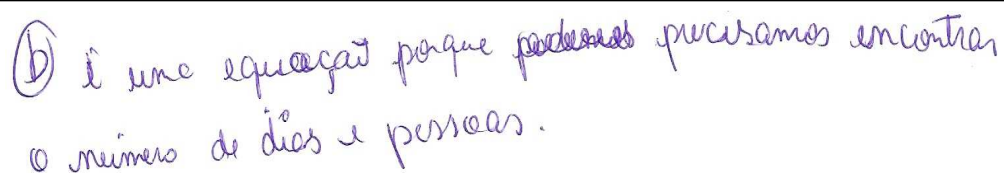 b) é uma equação porque precisamos encontrar
o número de dias e pessoas.